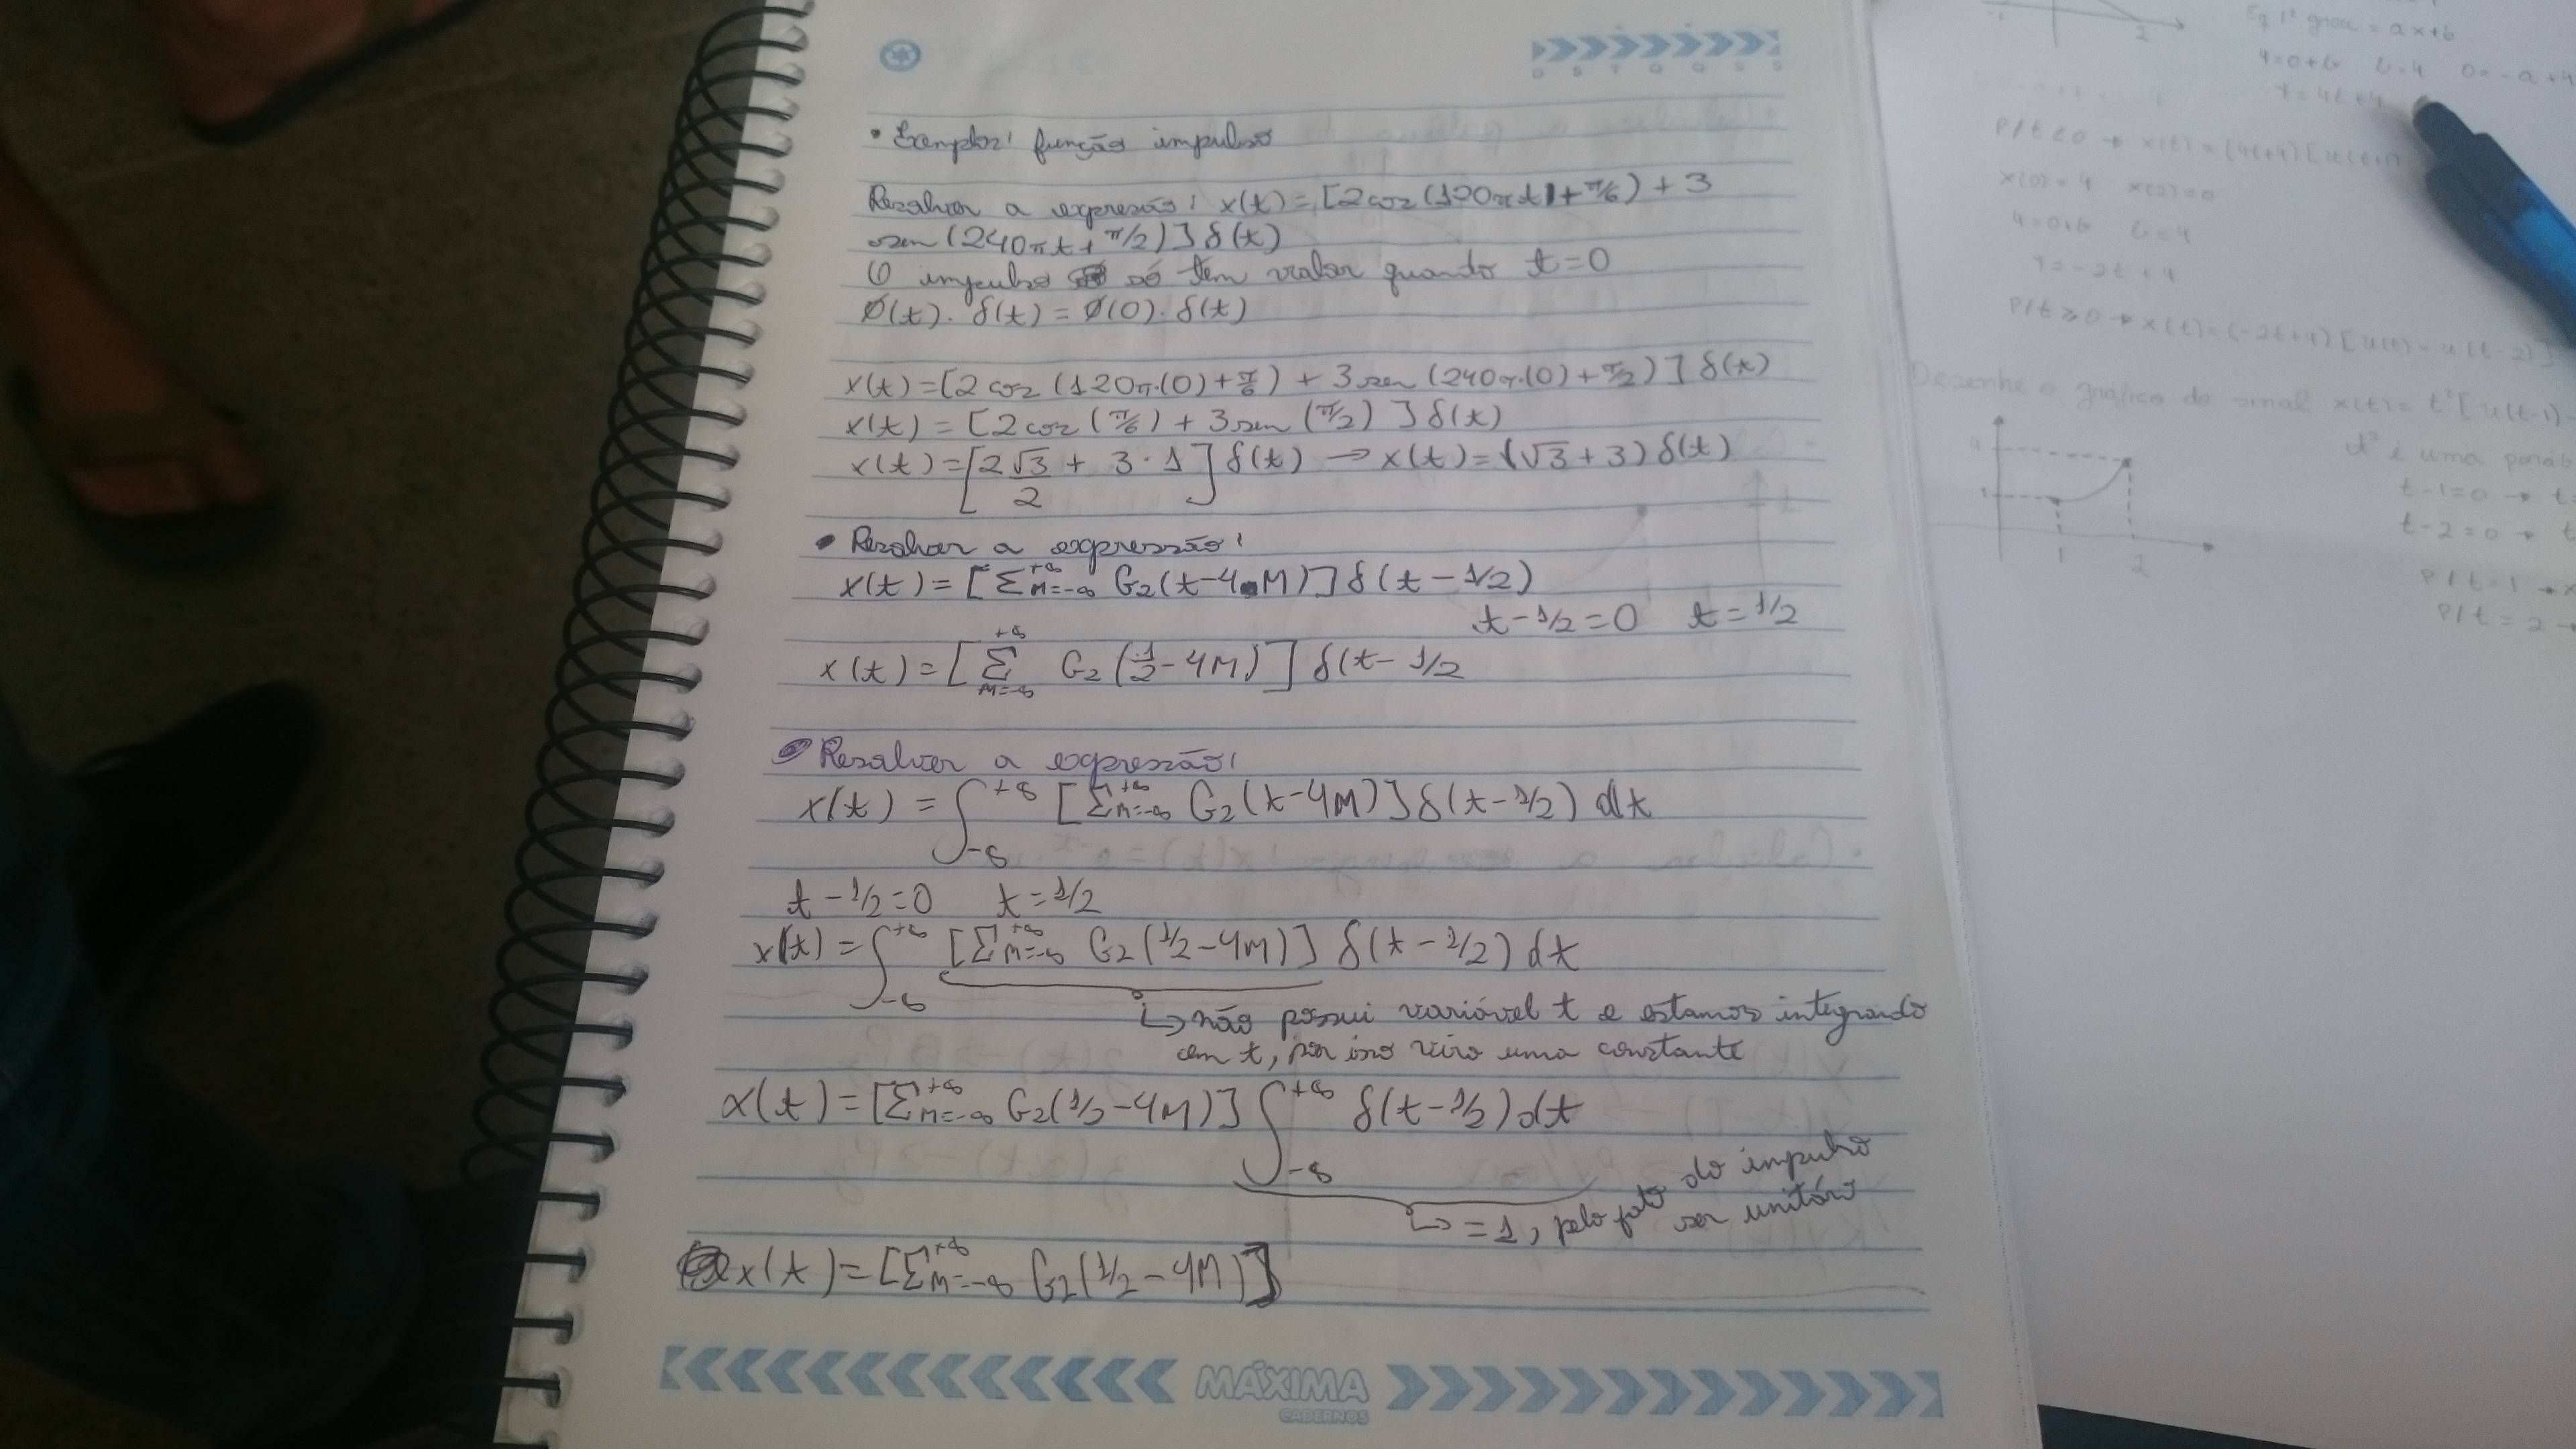 D S T Q Q S S
• Exemplos: função impulso
Resolver a expressão: x(t) = [2 cos (120πt + π/6) + 3
sen (240πt + π/2)] δ(t)
O impulso só tem valor quando t = 0
Ø(t). δ(t) = Ø(0). δ(t)
x(t) = [2 cos (120π.(0) + π/6) + 3 sen (240π.(0) + π/2)] δ(t)
x(t) = [2 cos (π/6) + 3 sen (π/2)] δ(t)
x(t) = [2√3/2 + 3 · 1] δ(t) → x(t) = (√3 + 3) δ(t)
• Resolver a expressão:
x(t) = [Σ M=-∞ +∞ G2 (t - 4.M)] δ(t - 1/2)
t - 1/2 = 0 t = 1/2
x(t) = [Σ M=-∞ +∞ G2 (1/2 - 4M)] δ(t - 1/2
• Resolver a expressão:
x(t) = ∫ -∞ +∞ [Σ M=-∞ +∞ G2 (t - 4M)] δ(t - 1/2) dt
t - 1/2 = 0 t = 1/2
x(t) = ∫ -∞ +∞ [Σ M=-∞ +∞ G2 (1/2 - 4M)] δ(t - 1/2) dt
↳ não possui variável t e estamos integrando
em t, por isso vira uma constante
x(t) = [Σ M=-∞ +∞ G2 (1/2 - 4M)] ∫ -∞ +∞ δ(t - 1/2) dt
↳ = 1, pelo fato do impulso
ser unitário
x(t) = [Σ M=-∞ +∞ G2 (1/2 - 4M)]
MÁXIMA
CADERNOS
-1 2
Eq 1º grau = ax + b
4 = 0 + b b = 4 0 = -a + 4
Y = 4t + 4
P/ t < 0 → x(t) = (4t+4) [u(t+1)
x(0) = 4 x(2) = 0
4 = 0 + b b = 4
Y = -2t + 4
P/ t ≥ 0 → x(t) = (-2t+4) [u(t) - u(t-2)]
Desenhe o gráfico do sinal x(t) = t² [u(t-1)
t² é uma
t - 1 = 0 →
t - 2 = 0 →
P/ t = 1 → x
P/ t = 2 →
4
1
1 2